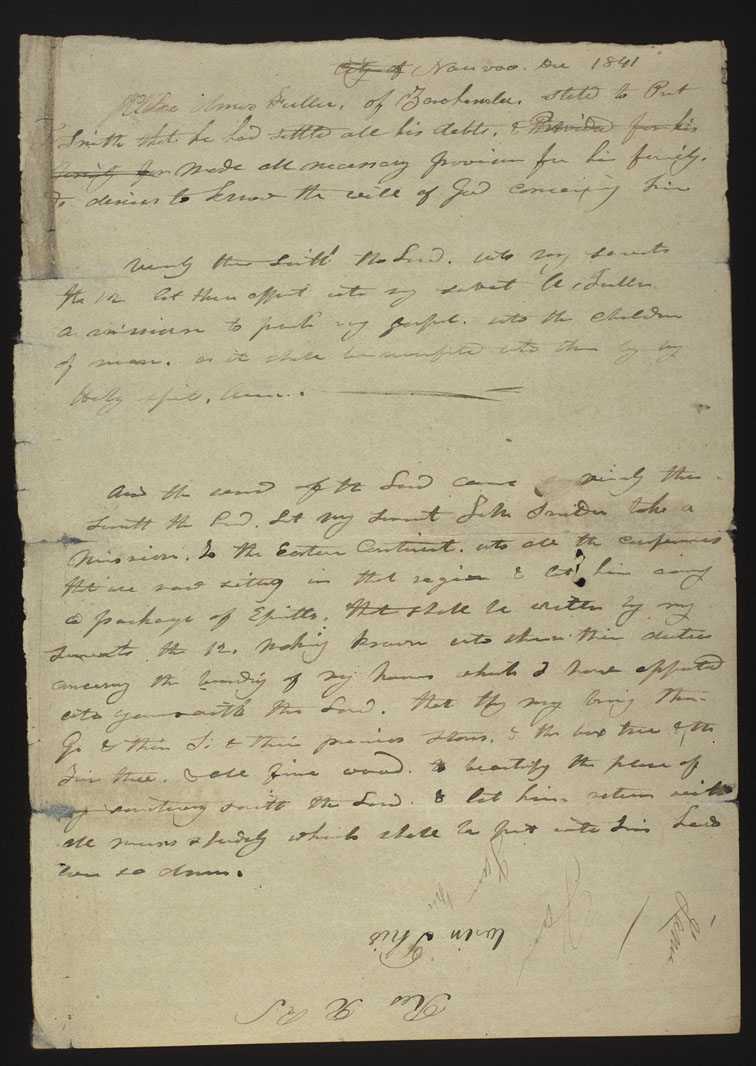 City of Nauvoo. Dec 1841
Elder Amos Fuller, of Zarahemla. stated to Prest
J Smith that he had settled all his debts, & Provided for his
family for made all necessary provision for his family.
& desires to know the will of God concerning him
Verily thus saith the Lord. unto my servants
the 12 let them appoint unto my servant A, Fuller
a mission to preach my gospel. unto the children
of men. as it shall be manifested unto them by my
Holy spirit. Amen.
And the word of the Lord came verily thus
saith the Lord. Let my servent John Snider take a
mission. to the Eastern Continent. unto all the conferences
that are now sitting in that region & let him carry
a package of Epistles, that shall be written by my
servants the 12, making known unto them their duties
concerning the building of my houses which I have appointed
unto you saith the Lord. that they may bring their
Go & their Si & their precious stones. & the box tree & the
Fir tree. & all fine wood. to beautify the place of
my sanctuary saith the Lord. & let him return with
all means speedily which shall be put into his hands
even so Amen.